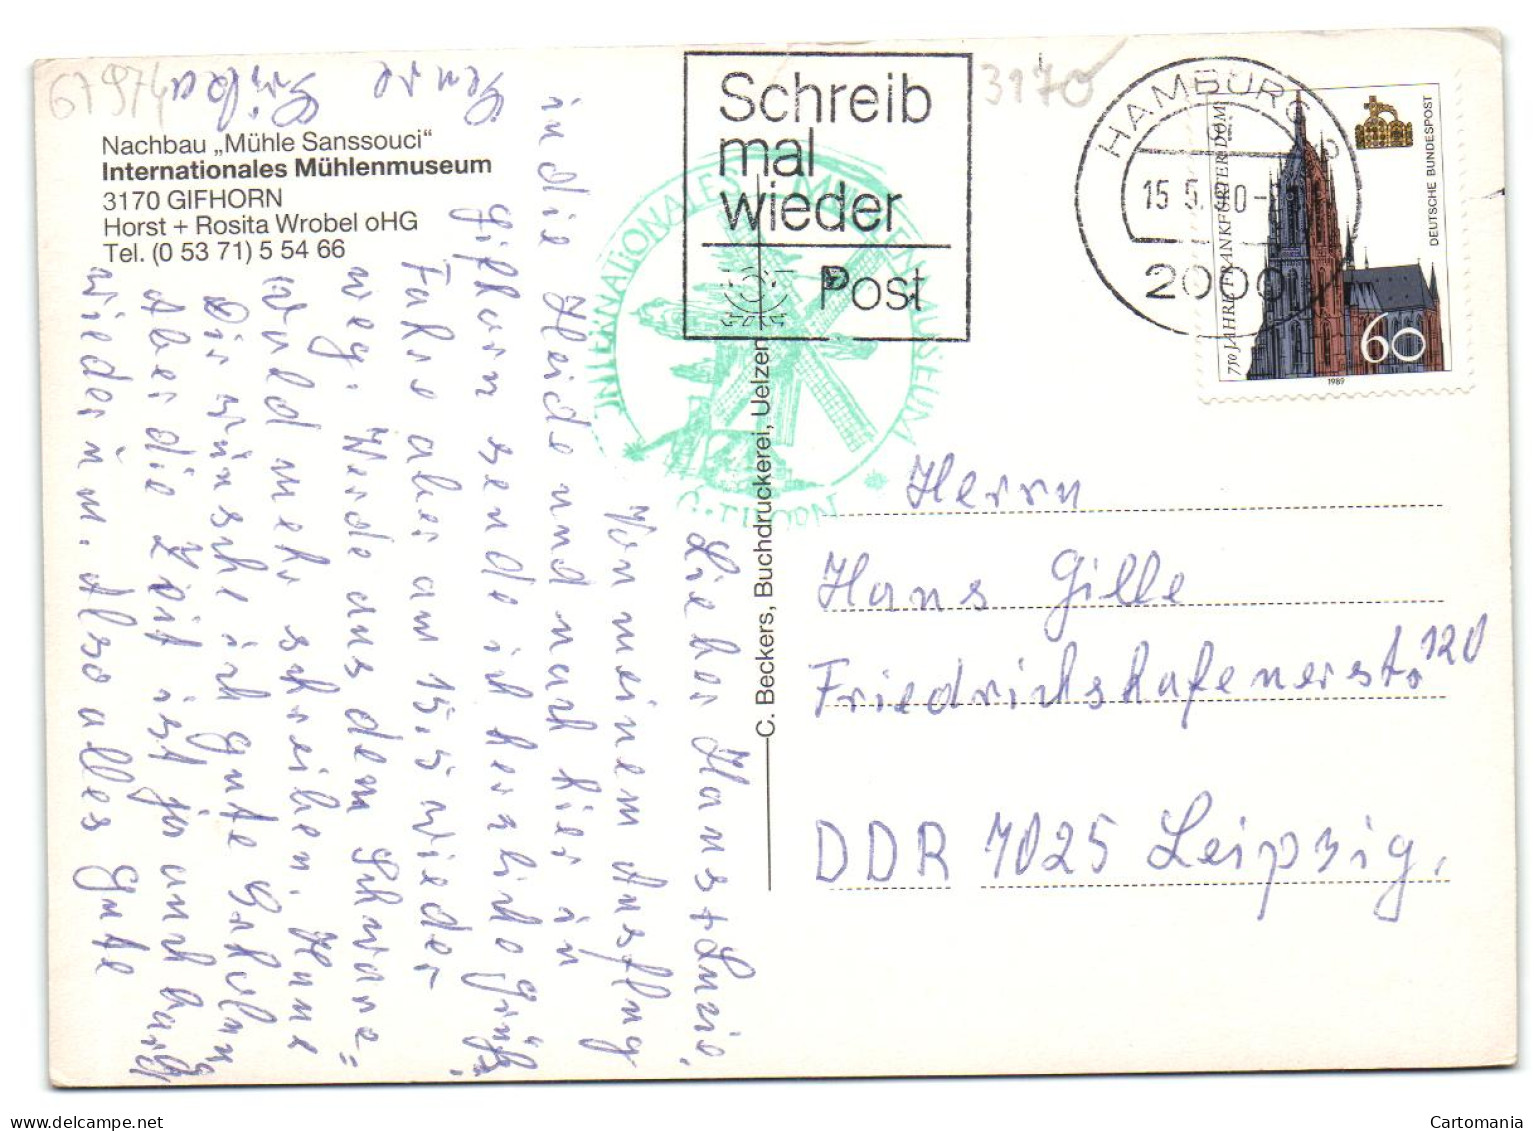 67974
Nachbau „Mühle Sanssouci“
Internationales Mühlenmuseum
3170 GIFHORN
Horst + Rosita Wrobel oHG
Tel. (0 53 71) 5 54 66
Schreib
mal
wieder
Post
3170
HAMBURG
15.5.90
2000
750 JAHRE FRANKFURTER DOM
DEUTSCHE BUNDESPOST
60
1989
INTERNATIONALES MÜHLENMUSEUM
GIFHORN
C. Beckers, Buchdruckerei, Uelzen
Lieber Hans + Luzie.
Von meinem Ausflug
in die Heide und nach hier in
Gifhorn sende ich herzliche Grüße.
Fahre aber am 15.5 wieder
weg. Werde aus dem Schwarz=
wald mehr schreiben. Hans
Dir wünsche ich gute Erholung
Aber die Zeit ist ja auch bald
wieder um. Also alles Gute
Herrn
Hans Gille
Friedrichshafenerst. 120
DDR 7025 Leipzig.